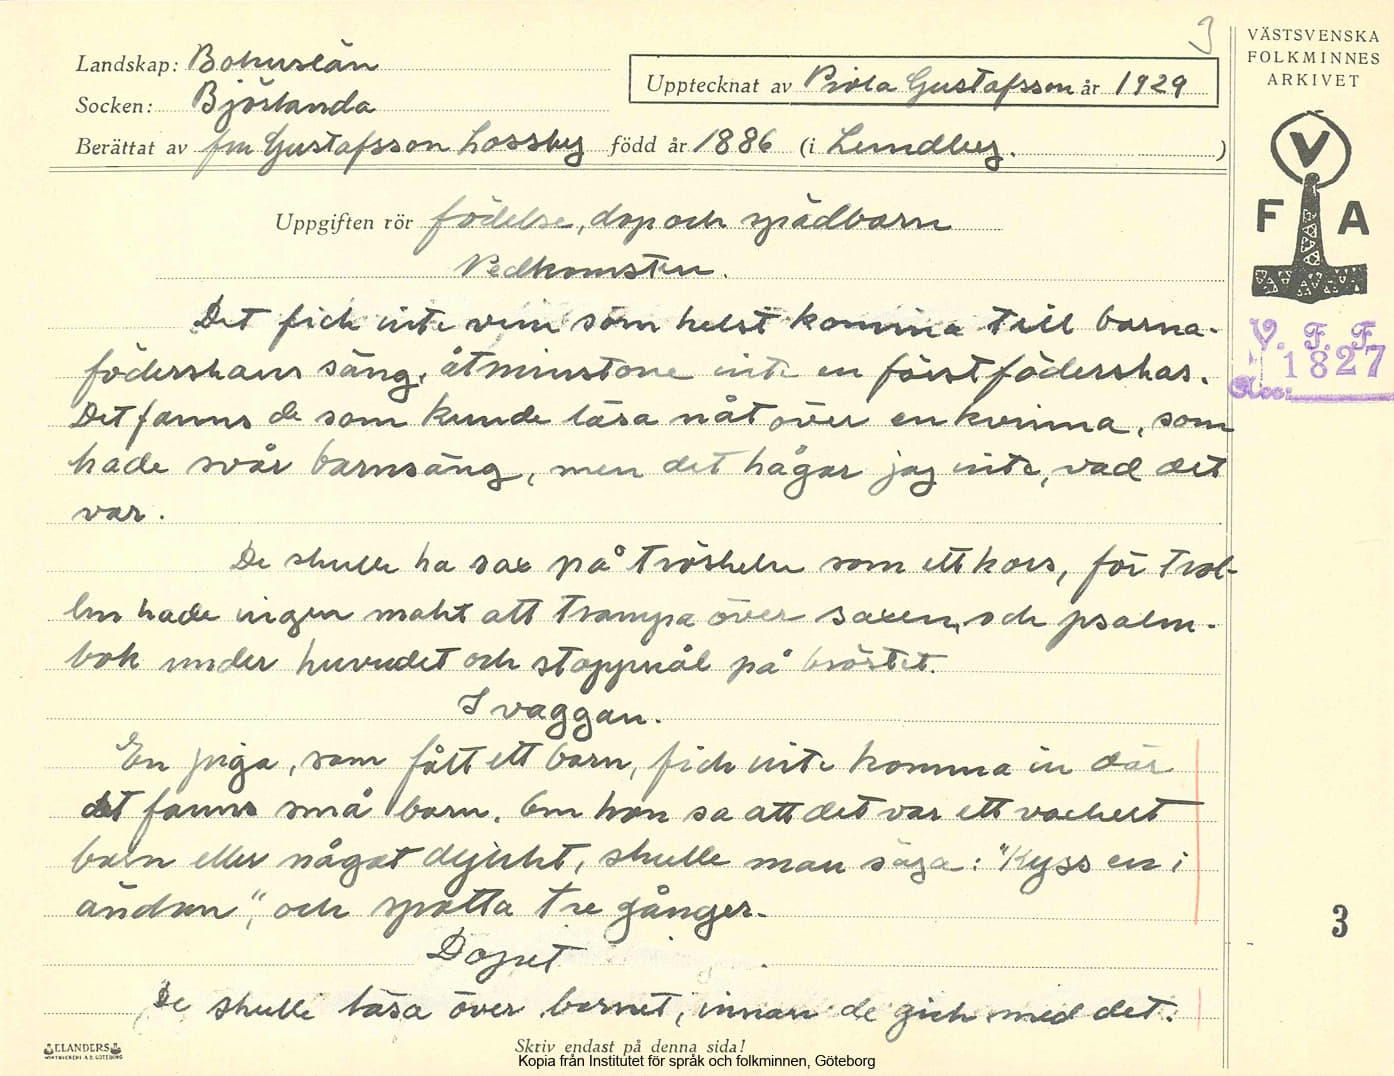 3
VÄSTSVENSKA
FOLKMINNES
ARKIVET
Landskap: Bohuslän
Socken: Björlanda
Upptecknat av Viola Gustafsson år 1929
Berättat av fru Gustafsson Lossby född år 1886 (i Lundby. )
V
F A
Uppgiften rör födelse, dop och spädbarn
Nedkomsten.
V. F. F.
1827
Acc:
Det fick inte vem som helst komma till barna-
föderskans säng, åtminstone inte en förstföderskas.
Det fanns de som kunde läsa nåt över en kvinna, som
hade svår barnsäng, men det hågar jag inte, vad det
var.
De skulle ha sax på tröskeln som ett kors, för trol-
len hade ingen makt att trampa över saxen, och psalm-
bok under huvudet och stoppnål på bröstet.
I vaggan.
En piga, som fått ett barn, fick inte komma in där
det fanns små barn. Om hon sa att det var ett vackert
barn eller något dylikt, skulle man säga: "Kyss en i
ändan", och spotta tre gånger.
3
Dopet
De skulle läsa över barnet, innan de gick med det.
ELANDERS
Skriv endast på denna sida!
Kopia från Institutet för språk och folkminnen, Göteborg